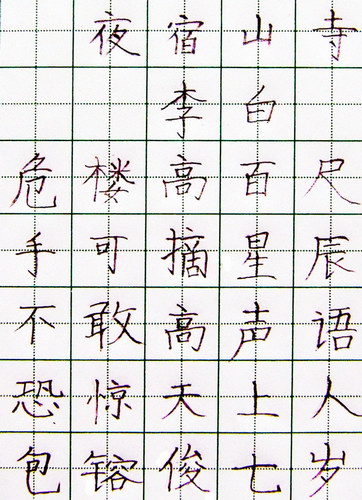 夜宿山寺
李白
危楼高百尺
手可摘星辰
不敢高声语
恐惊天上人
包镕天俊七岁